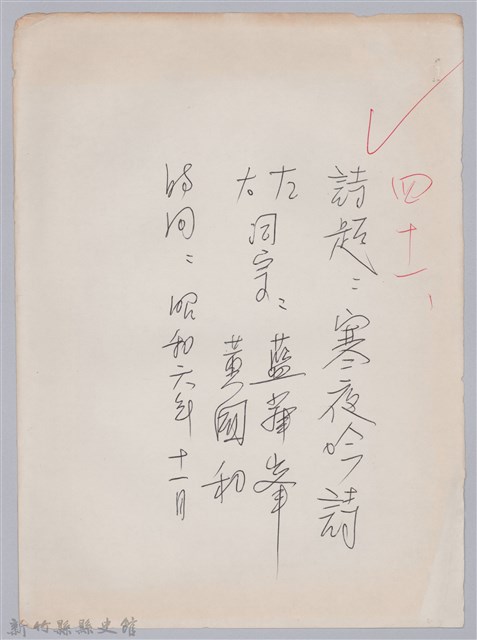 四十一、
詩題：寒夜吟詩
左詞宗：藍華峯
右　　　黃國和
時間：昭和六年十一月
新竹縣縣史館